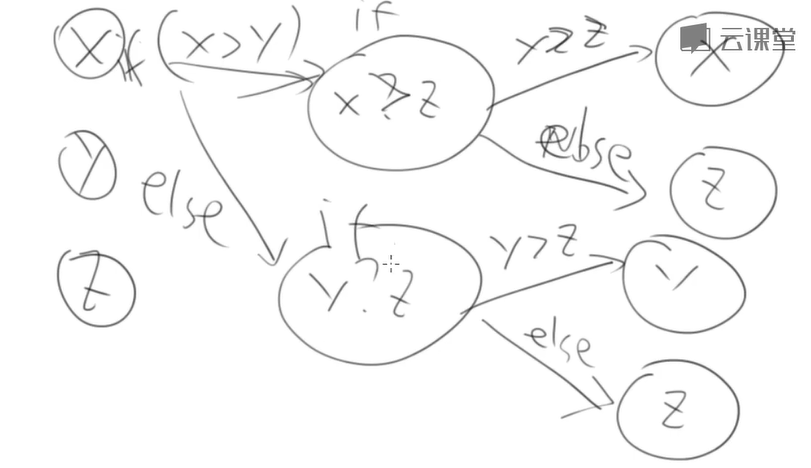 X if (X>Y)
if
X ? Z
X≥Z
X
云课堂
else
Z
Y
else
if
Y ? Z
Y>Z
Y
else
Z
Z